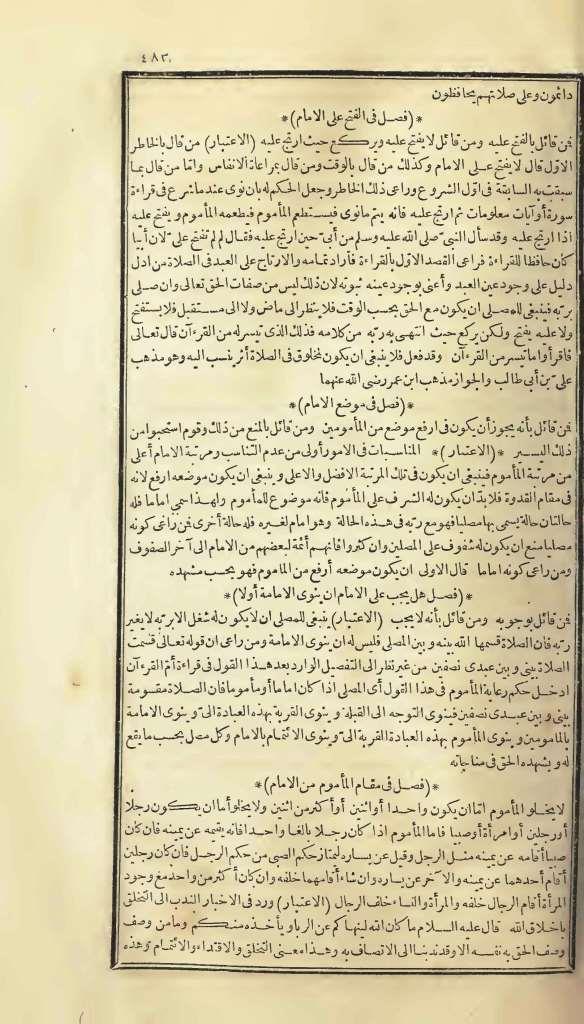 ٤٨٣
دائمون وعلى صلاتهم يحافظون
*(فصل فى الفتح على الامام)*
فمن قائل بالفتح عليه ومن قائل لا يفتح عليه ويركع حيث ارتج عليه (الاعتبار) من قال بالخاطر
الاوّل قال لا يفتح على الامام وكذلك من قال بالوقت ومن قال بمراعاة الانفاس وامّا من قال بما
سبقت به السابقة فى اوّل الشروع وراعى ذلك الخاطر وجعل الحكم له بان نوى عند ما شرع فى قراءة
سورة أو آيات معلومات ثم ارتج عليه فانه يتم مانوى فيستطعم المأموم فيطعمه المأموم ويفتح عليه
اذا ارتج عليه وقد سأل النبىّ صلى الله عليه وسلم من أبىّ حين ارتج عليه فقال لم لم تفتح علىّ لان أبيا
كان حافظا للقراءة فراعى القصد الاوّل بالقراءة فأراد تمامه والارتاج على العبد فى الصلاة من ادل
دليل على وجود عين العبد وأعنى بوجود عينه ثبوته لان ذلك ليس من صفات الحق تعالى وان صلى
بربّه فينبغى للمصلى ان يكون مع الحق بحسب الوقت فلا ينظر الى ماض ولا الى مستقبل فلا يستفتح
ولا عليه يفتح ولكن يركع حيث انتهى به ربّه من كلامه فذلك الذى تيسر له من القرءآن قال تعالى
فاقرأوا ما تيسر من القرءآن وقد فعل فلا ينبغى ان يكون لمخلوق فى الصلاة أثر ينسب اليه وهو مذهب
علىّ بن أبى طالب والجواز مذهب ابن عمر رضى الله عنهما
*(فصل فى موضع الامام)*
فمن قائل بأنه يجوز أن يكون فى ارفع موضع من المأمومين ومن قائل بالمنع من ذلك وقوم استحبوا من
ذلك اليسير *(الاعتبار)* المناسبات فى الامور أولى من عدم التناسب ومرتبة الامام أعلى
من مرتبة المأموم فينبغى ان يكون فى تلك المرتبة الافضل والاعلى وينبغى ان يكون موضعه ارفع لانه
فى مقام القدوة فلا بدّ ان يكون له الشرف على المأموم فانه موضوع للمأموم ولهذا سمى اماما فله
حالتان حالة يسمى بها مصليا فهو مع ربّه فى هذه الحالة وهو امام لغيره فله حالة أخرى فمن راعى كونه
مصليا منع ان يكون له شفوف على المصلين وان كثروا فانهم أئمّة لبعضهم من الامام الى آخر الصفوف
ومن راعى كونه اماما قال الاولى ان يكون موضعه أرفع من المأموم فهو بحسب مشهده
*(فصل هل يجب على الامام ان ينوى الامامة أولا)*
فمن قائل بوجوبه ومن قائل بأنه لا يجب (الاعتبار) ينبغى للمصلى ان لا يكون له شغل الا بربّه لا بغير
ربّه فان الصلاة قسمها الله بينه وبين المصلى فليس له ان ينوى الامامة ومن راعى ان قوله تعالى قسمت
الصلاة بينى وبين عبدى نصفين من غير نظر الى التفصيل الوارد بعد هذا القول فى قراءة أمّ القرءآن
ادخل حكم رعاية المأموم فى هذا القول أى المصلى اذا كان اماما أو مأموما فان الصلاة مقسومة
بينى وبين عبدى نصفين فينوى التوجه الى القبلة وينوى القربة بهذه العبادة الىّ وينوى الامامة
بالمأمومين وينوى المأموم بهذه العبادة القربة الىّ وينوى الائتمام بالامام وكل مصل بحسب ما يقع
له ويشهده الحق فى مناجاته
*(فصل فى مقام المأموم من الامام)*
لا يخلو المأموم امّا ان يكون واحدا أو اثنين أو أكثر من اثنين ولا يخلو أما ان يكون رجلا
أو رجلين أو امرأة أو صبيا فاما المأموم اذا كان رجلا بالغا واحدا فانه يقيمه عن يمينه فان كان
صبيا أقامه عن يمينه مثل الرجل وقيل عن يساره ليمتاز حكم الصبى من حكم الرجل فان كان رجلين
أقام أحدهما عن يمينه والآخر عن يساره وان شاء أقامهما خلفه وان كان أكثر من واحد مع وجود
المرأة أقام الرجال خلفه والمرأة والنساء خلف الرجال (الاعتبار) ورد فى الاخبار الندب الى التخلق
باخلاق الله قال عليه السلام ما كان الله لينهاكم عن الربا ويأخذه منكم وما من وصف
وصف الحق به نفسه الا وقد ندبنا الى الاتصاف به وهذا معنى التخلق والاقتداء والائتمام وهذه